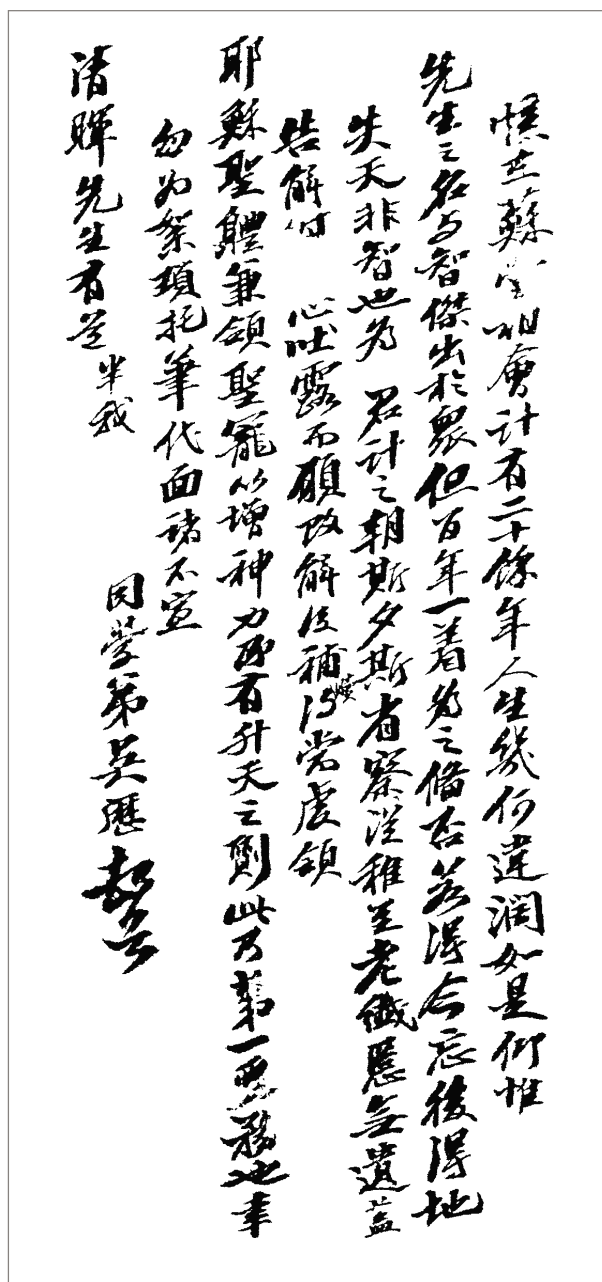 憶在蘇堂相會計有二十餘年人生幾何違濶如是仰惟
先生之名与智傑出於眾但百年一着先之備否若得今忘後得地
失天非智也為 君計之朝斯夕斯省察從稚至老纖慝無遺蓋
告解时 心吐露而願改解後補贖得當虔領
耶穌聖體兼領聖寵以增神力即有升天之劑此乃第一要務也幸
勿为絮瑣托筆代面諸不宣
清暉先生有道 半我
同學弟吳歷